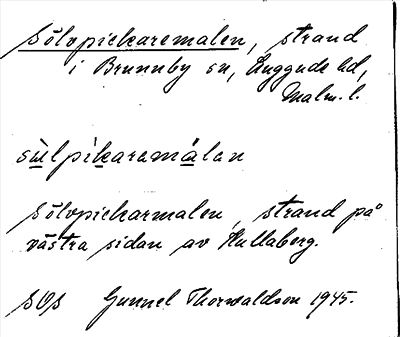 Sölvpickaremalen, strand
i Brunnby sn, Luggude hd,
Malm. l.
sülpikaremålen
Sölvpickarmalen, strand på
västra sidan av Kullaberg.
SOS Gunnel Thorwaldson 1945.